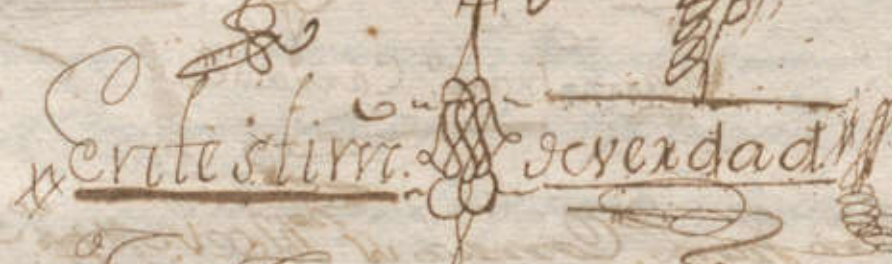 En testim. de verdad